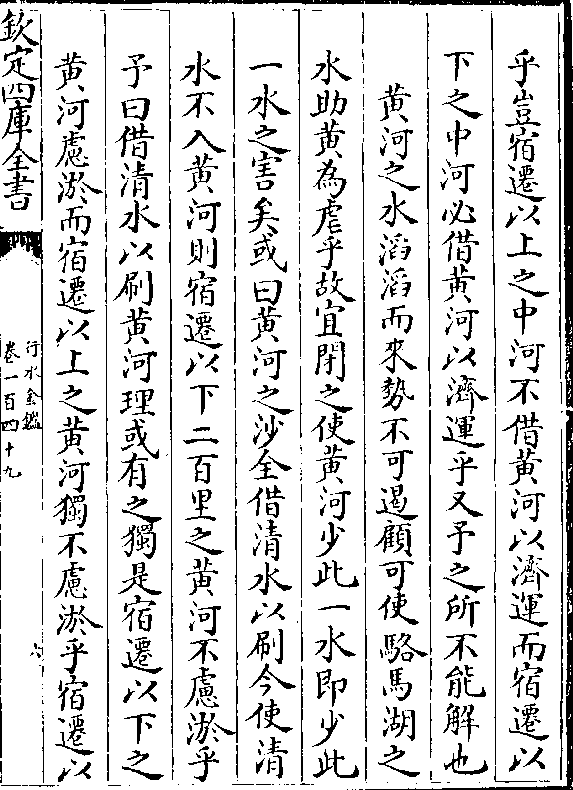 乎豈宿遷以上之中河不借黃河以濟運而宿遷以
下之中河必借黃河以濟運乎又予之所不能解也
黃河之水滔滔而來勢不可遏顧可使駱馬湖之
水助黃為虐乎故宜閉之使黃河少此一水即少此
一水之害矣或曰黃河之沙全借清水以刷今使清
水不入黃河則宿遷以下二百里之黃河不慮淤乎
予曰借清水以刷黃河理或有之獨是宿遷以下之
黃河慮淤而宿遷以上之黃河獨不慮淤乎宿遷以
欽定四庫全書
行水金鑑
卷一百四十九
六